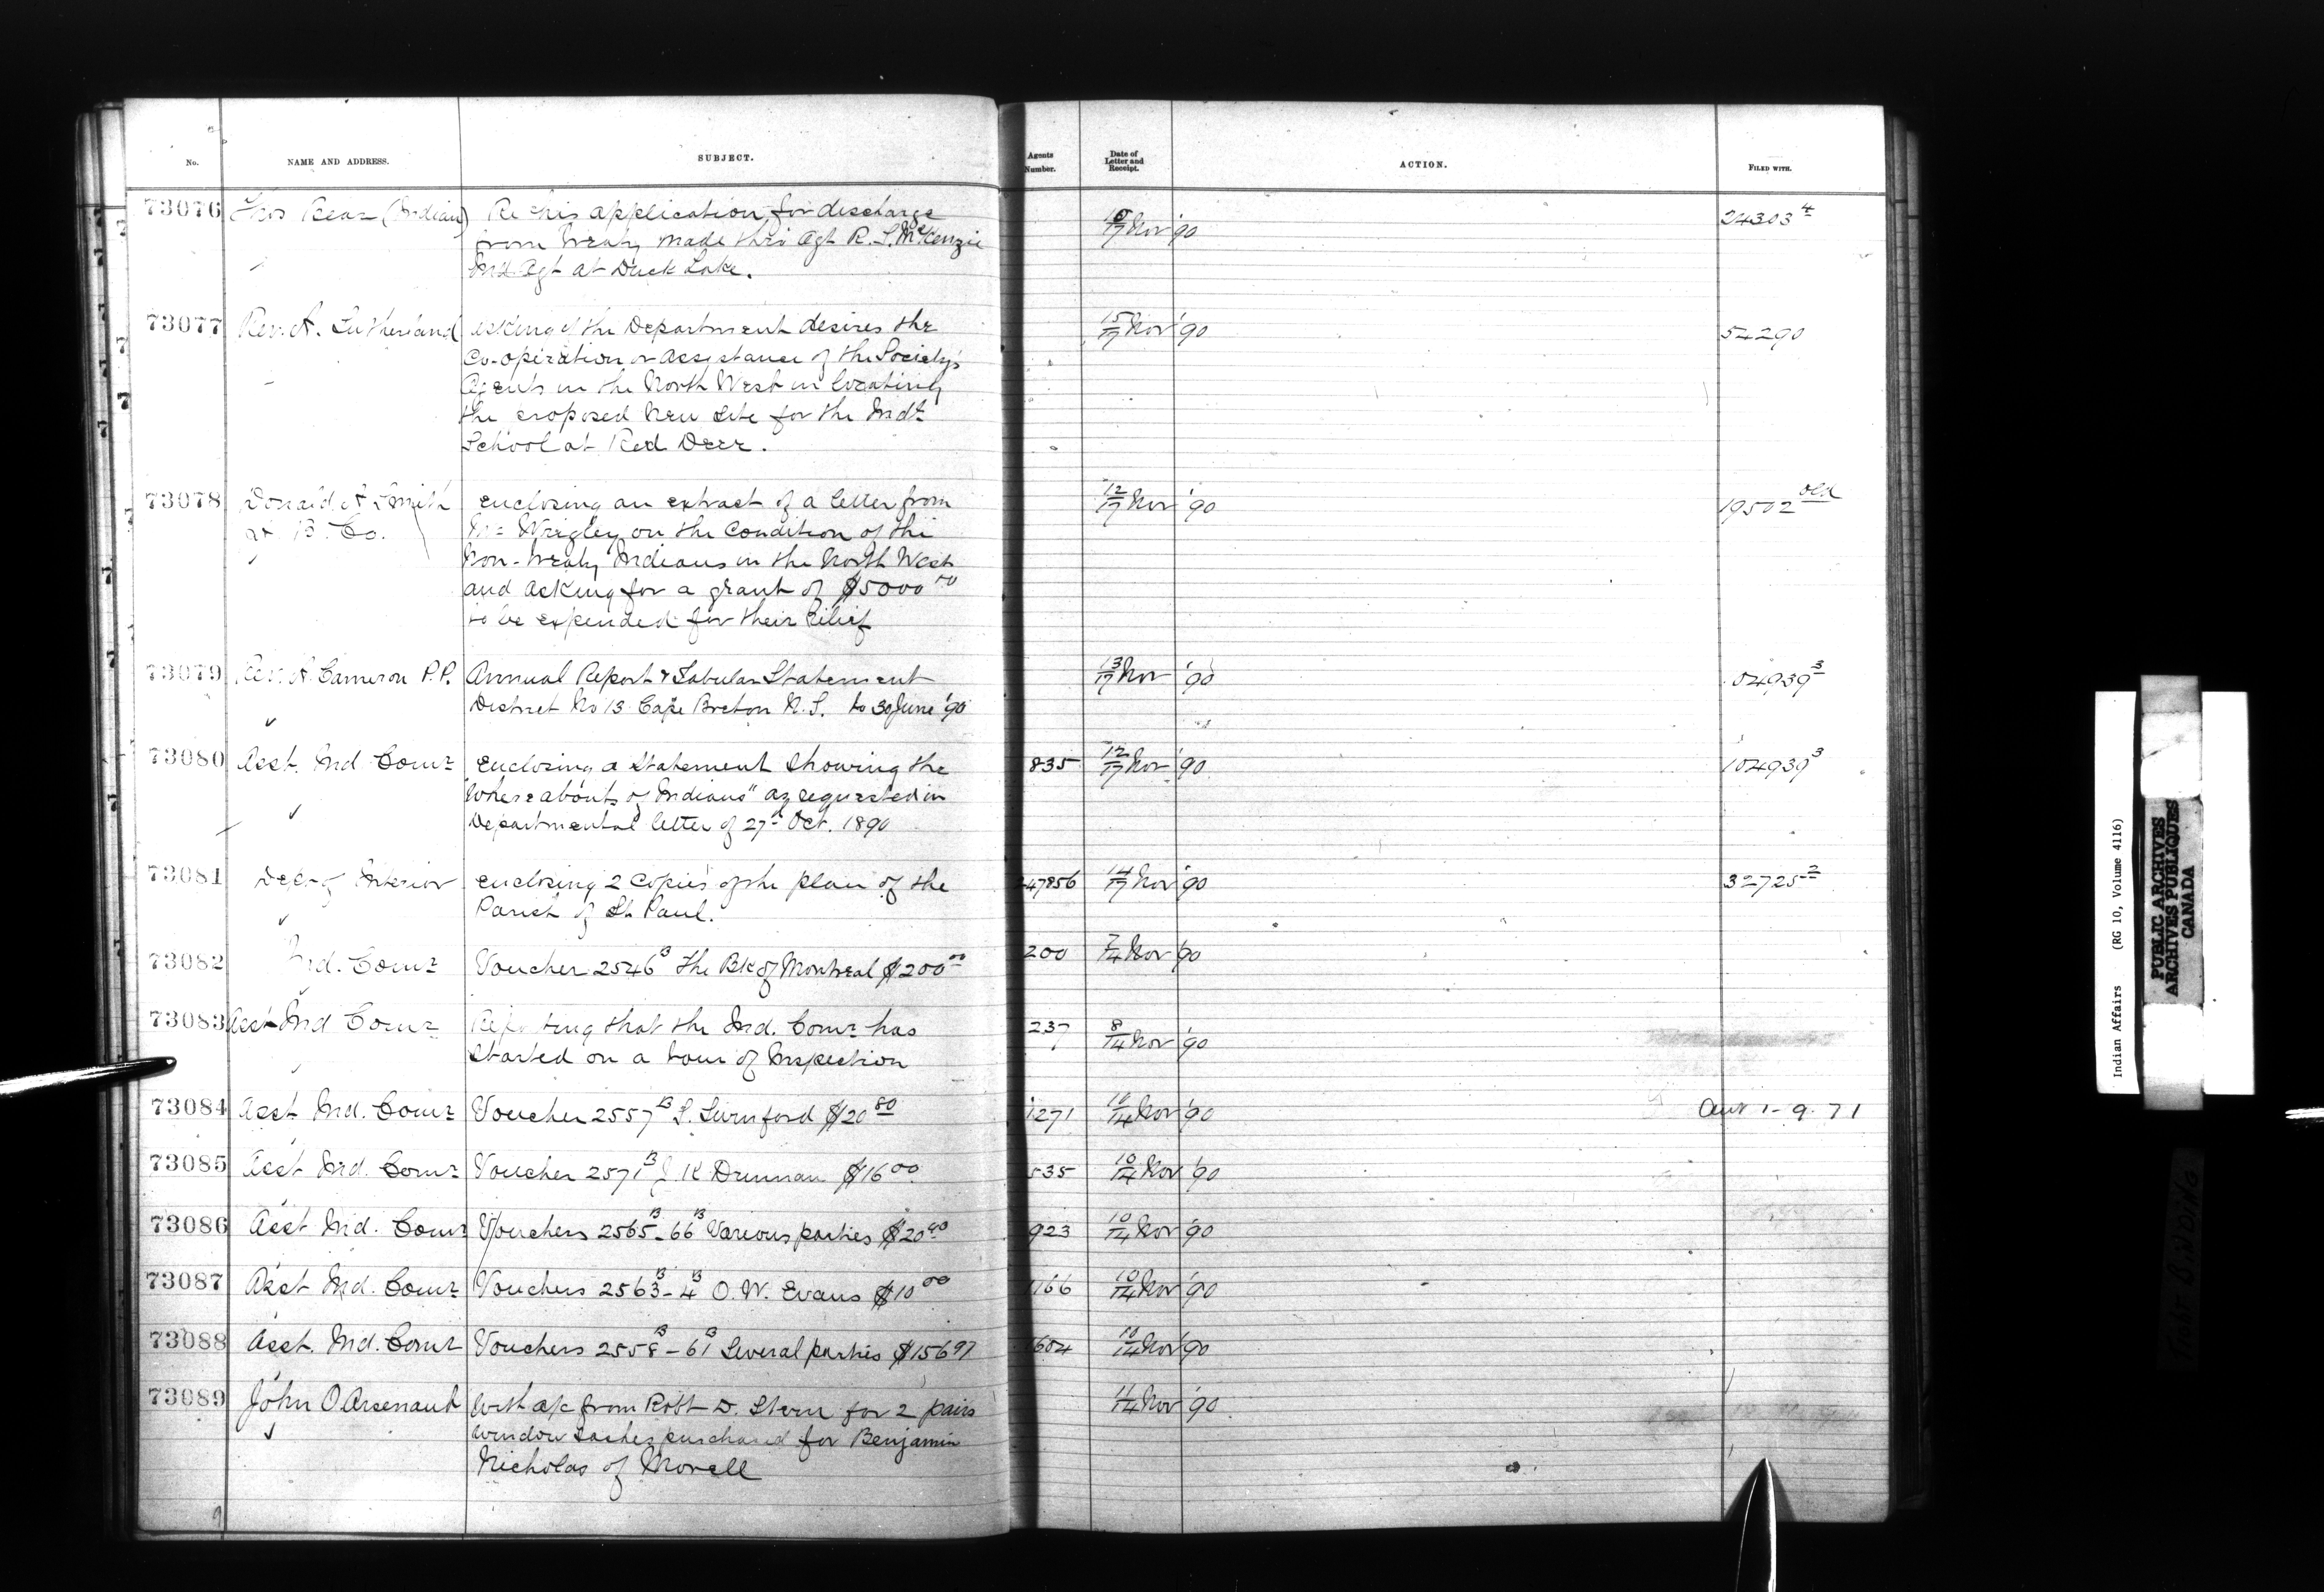 No. NAME AND ADDRESS. SUBJECT. Agents Number. Date of Letter and Receipt. ACTION. FILED WITH.
73076 Thos Bear (Indian) Re his application for discharge 10/17 Nov '90 24303 4
from Treaty made thro Agt R. S. McKenzie
Ind Agt at Duck Lake.
73077 Rev. A. Sutherland asking if the Department desires the 15/17 Nov '90 54290
Co-operation or assistance of the Society's
Agents in the North West in locating
the proposed new site for the Indl
School at Red Deer.
73078 Donald A Smith enclosing an extract of a letter from 12/17 Nov '90 19502 old
H. B. Co. Mr Wrigley on the condition of the
Non-treaty Indians in the North West
and asking for a grant of $5000 00
to be expended for their relief
73079 Rev. A. Cameron P.P. Annual Report & Tabular Statement 13/17 Nov '90 104939 3
District No 13 Cape Breton N.S. to 30 June '90
73080 Asst. Ind Comr enclosing a Statement showing the 835 12/17 Nov '90 104939 3
"Whereabouts of Indians" as requested in
Departmental letter of 27th Oct. 1890
73081 Dept of Interior enclosing 2 copies of the plan of the 247856 14/17 Nov '90 32725 2
Parish of St. Paul.
73082 Ind. Comr Voucher 2546 B The Bk of Montreal $200 00 200 7/14 Nov '90
73083 Asst Ind Comr Reporting that the Ind. Comr has 237 8/14 Nov '90
started on a tour of Inspection
73084 Asst Ind. Comr Voucher 2557 B S. Swinford $20 80 1271 10/14 Nov '90 Ans 1-9-71
73085 Asst Ind. Comr Voucher 2571 B J. K Drennan $16 00 535 10/14 Nov '90
73086 Asst Ind. Comr Vouchers 2565 B - 66 B Various parties $20 40 923 10/14 Nov '90
73087 Asst Ind. Comr Vouchers 2563 B - 4 B O. W. Evans $10 00 1166 10/14 Nov '90
73088 Asst. Ind. Comr Vouchers 2558 B - 61 B Several parties $156 97 1604 10/14 Nov '90
73089 John O Arsenault With a/c from Robt D. Stern for 2 pairs 11/14 Nov '90
window sashes purchased for Benjamin
Nicholas of Morell
9
Indian Affairs (RG 10, Volume 4116)
PUBLIC ARCHIVES
ARCHIVES PUBLIQUES
CANADA
TIGHT BINDING